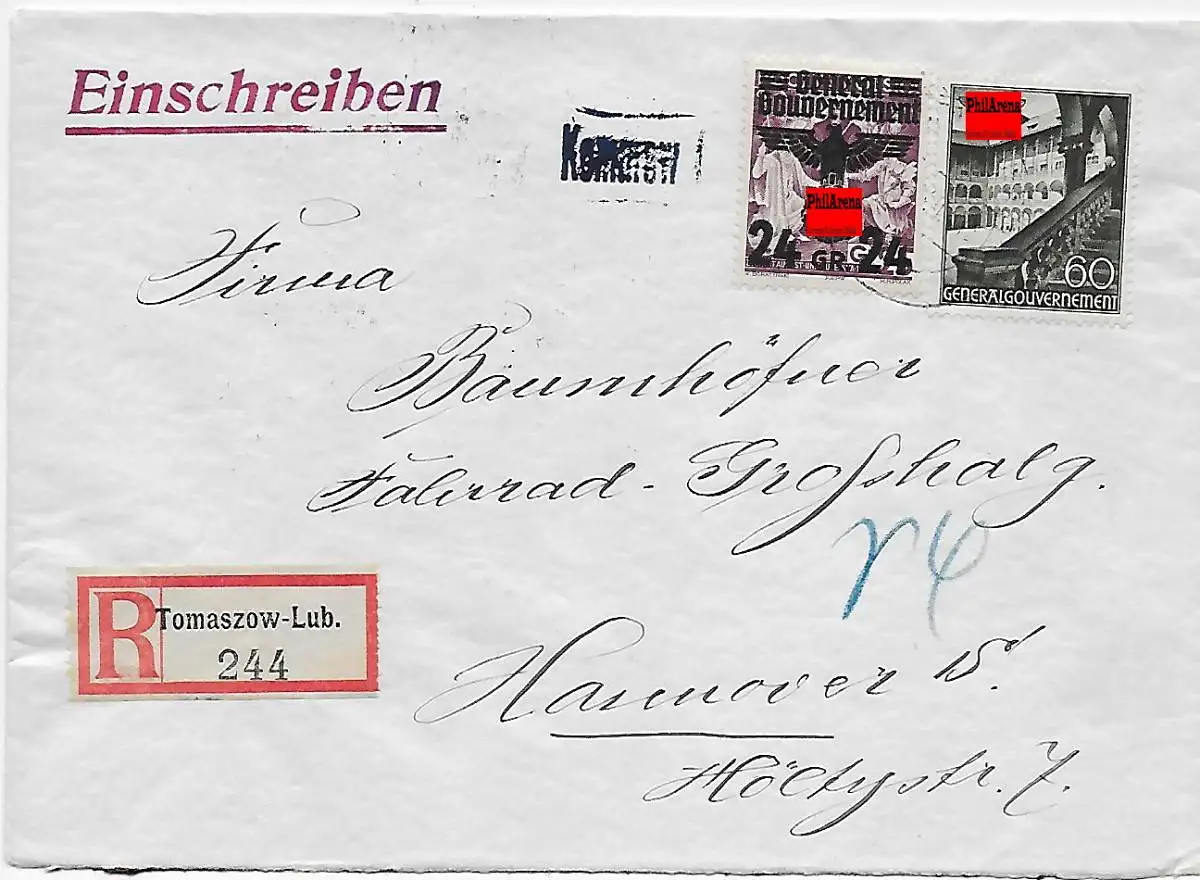 Einschreiben
General
Gouvernement
PhilArena
24 GR 24
PhilArena
60
GENERALGOUVERNEMENT
Firma
Bäumhöfner
Fahrrad-Großhalg.
R Tomaszow-Lub.
244
Hannover
Höltystr. 7.